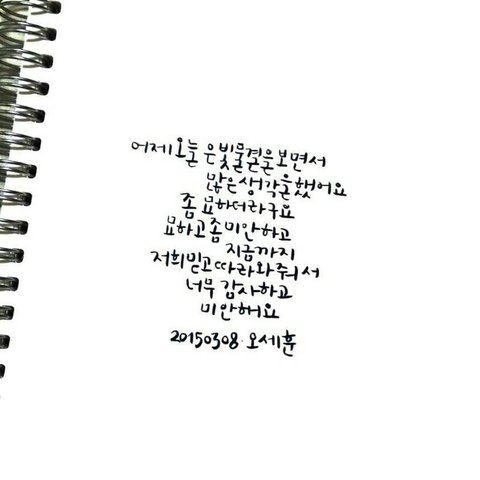 어제오늘 은빛물결을보면서
많은생각을했어요
좀 묘하더라구요
묘하고좀미안하고
지금까지
저희믿고따라와줘서
너무 감사하고
미안해요
20150308. 오세훈